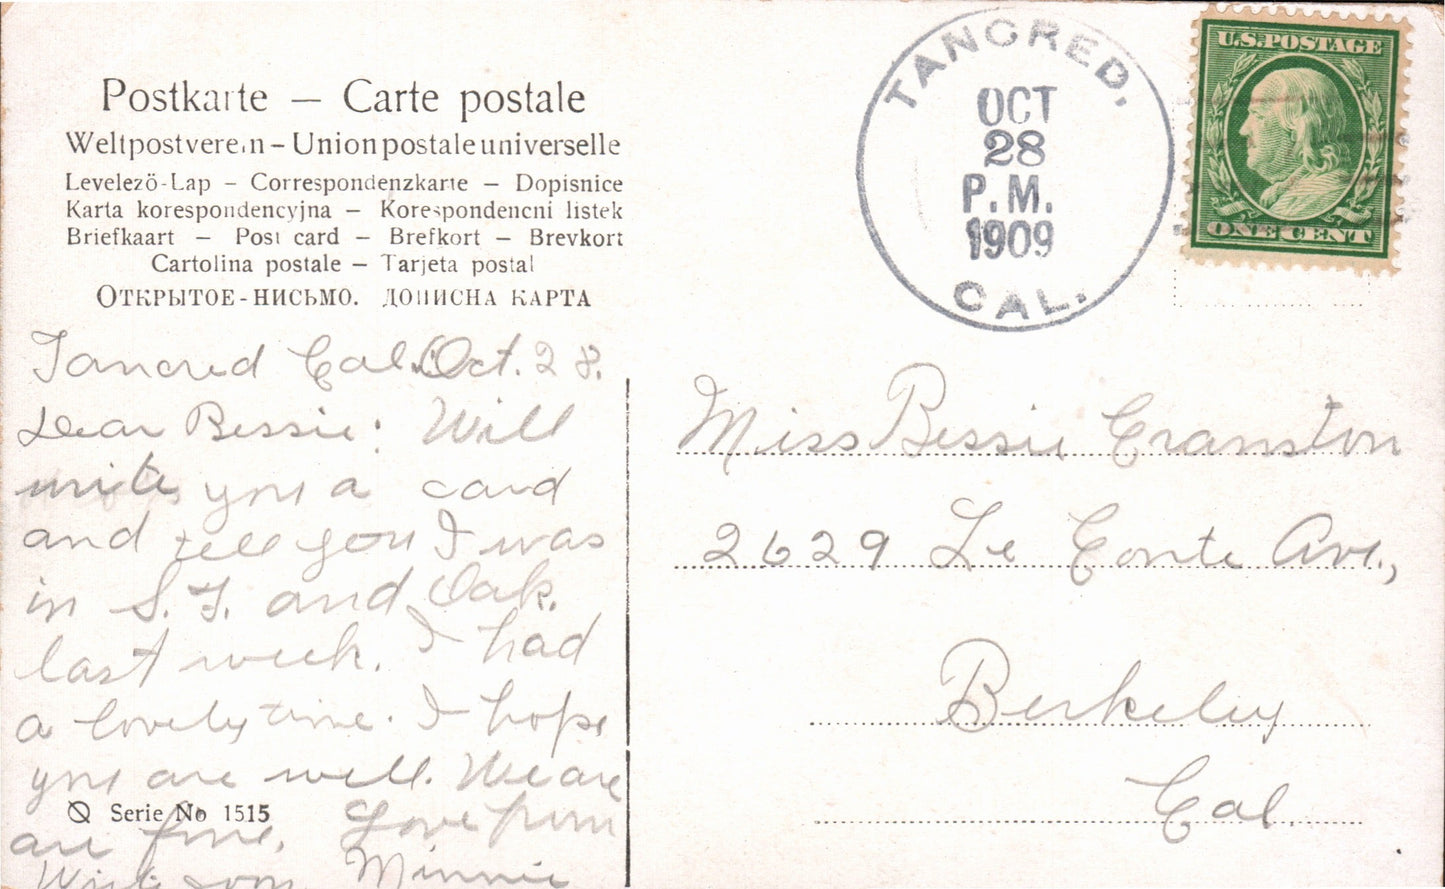 Postkarte — Carte postale
Weltpostverein - Union postale universelle
Levelezö-Lap — Correspondenzkarte — Dopisnice
Karta korespondencyjna — Korespondencni listek
Briefkaart — Post card — Brefkort — Brevkort
Cartolina postale — Tarjeta postal
ОТКРЫТОЕ-НИСЬМО. ДОПИСНА КАРТА
Tancred Cal. Oct. 28.
Dear Bessie: Will
write you a card
and tell you I was
in S.F. and Oak.
last week. I had
a lovely time. I hope
you are well. We are
are fine. Love from
Write soon Minnie
Serie No 1515
TANCRED,
OCT
28
P.M.
1909
CAL.
U.S.POSTAGE
ONE CENT
Miss Bessie Cranston
2629 Le Conte Ave.,
Berkeley
Cal.